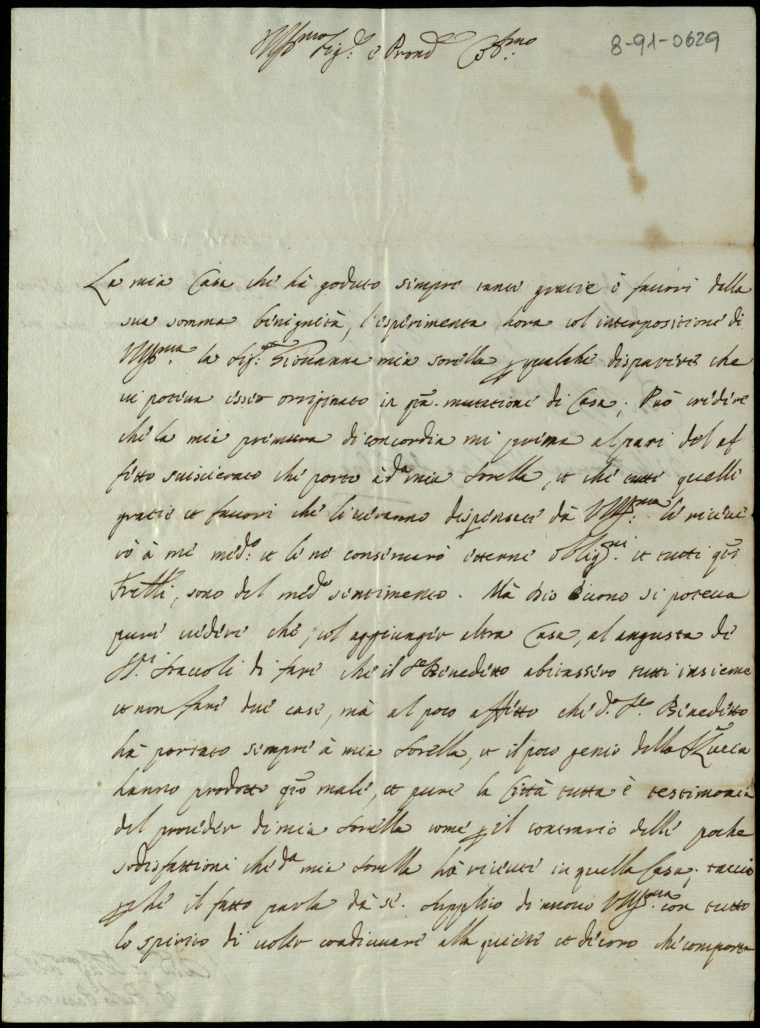 Ill.mo Sig.r e Pron Col.mo
8-91-0629
La mia Casa che hà goduto sempre tante gratie e fauori della
sua somma benignità, l'esperimenta hora col interpositione di
V.S. Ill.ma la Sig.ra Giouanna mia sorella p qualche disparere che
ui poteua esser originato in q.ta mutatione di Casa; Può credere
che la mia premura di concordia mi preme al pari del af
fetto suiscerato che porto à d.a mia Sorella, et che tutte quelle
gratie et fauori che li ueranno dispensate dà V.S. Ill.ma le riceue
rò à me med.o et le ne conseruarò eterne oblig.ni et tutti q.ti
Fretelli, sono del med.o sentimento. Mà Dio buono si poteua
pure uedere che, col aggiunger altra Casa, al angusta de
SS.ri Staccoli di fare che il S.r Benedetto abitassero tutti insieme
et non fare due case, mà al poco affetto che d.o S.r Benedetto
hà portato sempre à mia Sorella, et il poco genio della S.ra Lucca
hanno prodotto q.to male, et pure la Città tutta è testimonia
del proceder di mia Sorella come p il contrario delle poche
sodisfattioni che d.a mia Sorella hà riceute in quella Casa; taccio
p che il fatto parla dà sè. Supplico di nuouo V.S. Ill.ma con tutto
lo spirito di uoler coadiuuare alla quiete et decoro che comporta